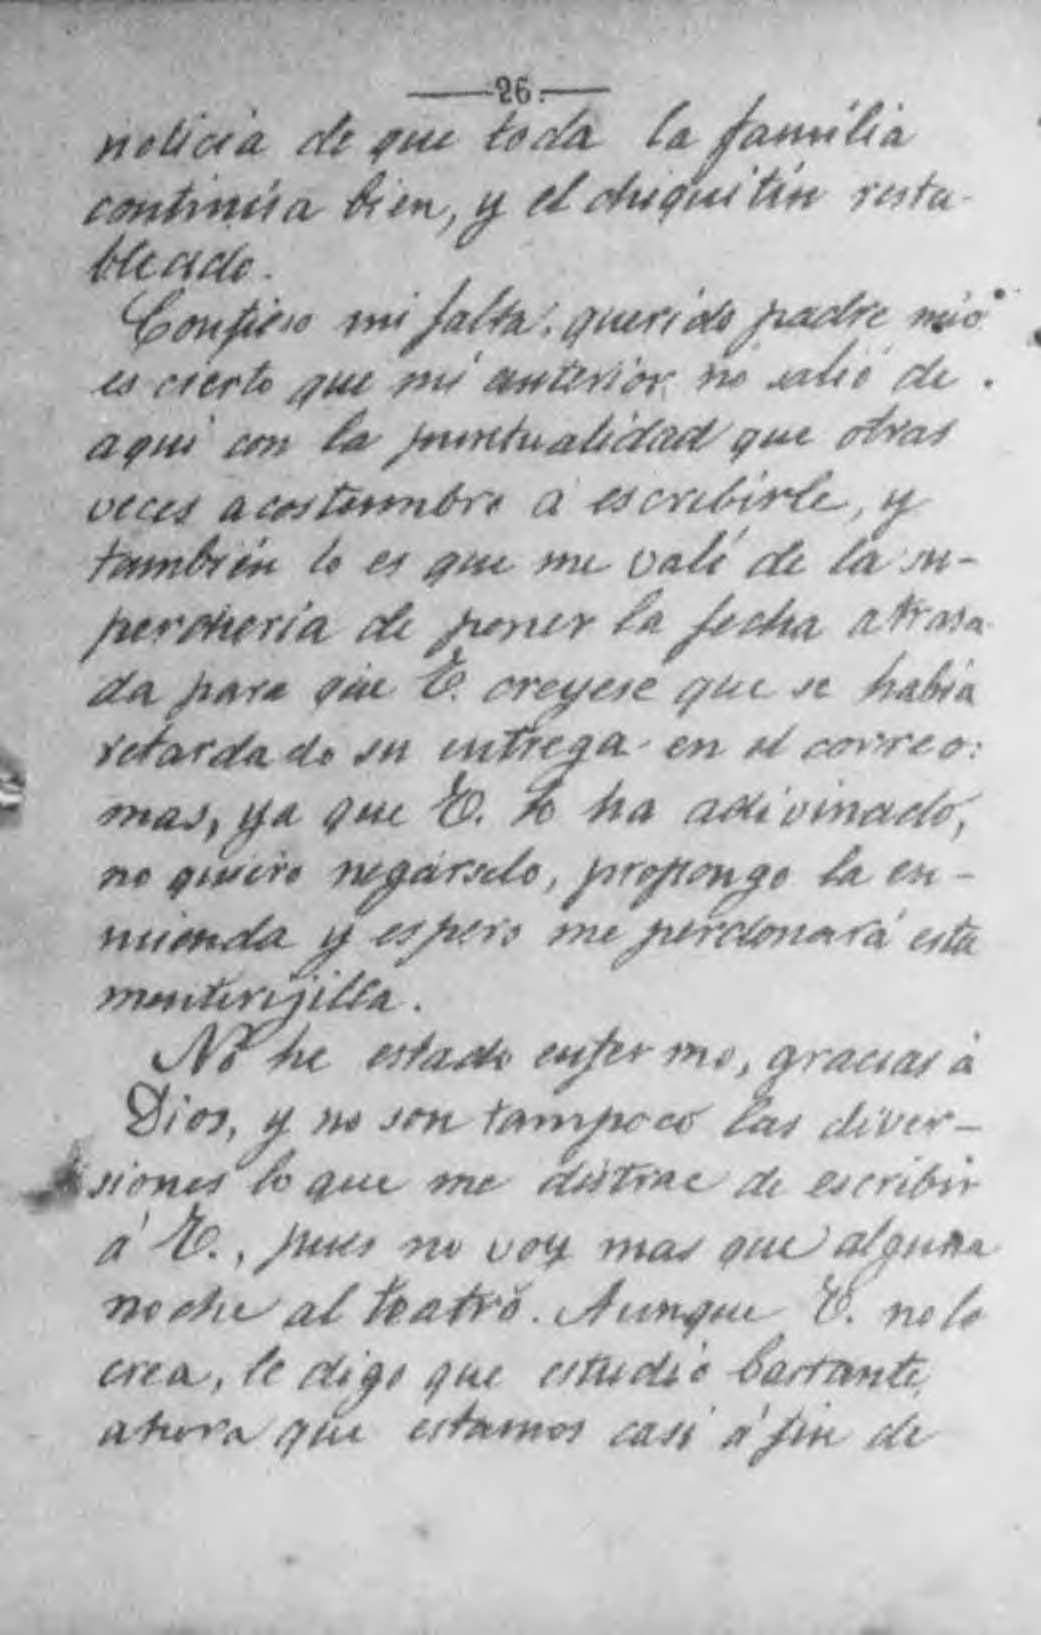 —26.—
noticia de que toda la familia
continúa bien, y el chiquitín resta-
blecido.
Confieso mi falta, querido padre mío:
es cierto que mi anterior no salió de
aquí con la puntualidad que otras
veces acostumbro á escribirle, y
también lo es que me valí de la su-
perchería de poner la fecha atrasa-
da para que V. creyese que se había
retardado su entrega en el correo:
mas, ya que V. lo ha adivinado,
no quiero negárselo, propongo la en-
mienda y espero me perdonará esta
mentirijilla.
No he estado enfermo, gracias á
Dios, y no son tampoco las diver-
siones lo que me distrae de escribir
á V., pues no voy mas que alguna
noche al teatro. Aunque V. no lo
crea, le digo que estudio bastante,
ahora que estamos casi á fin de